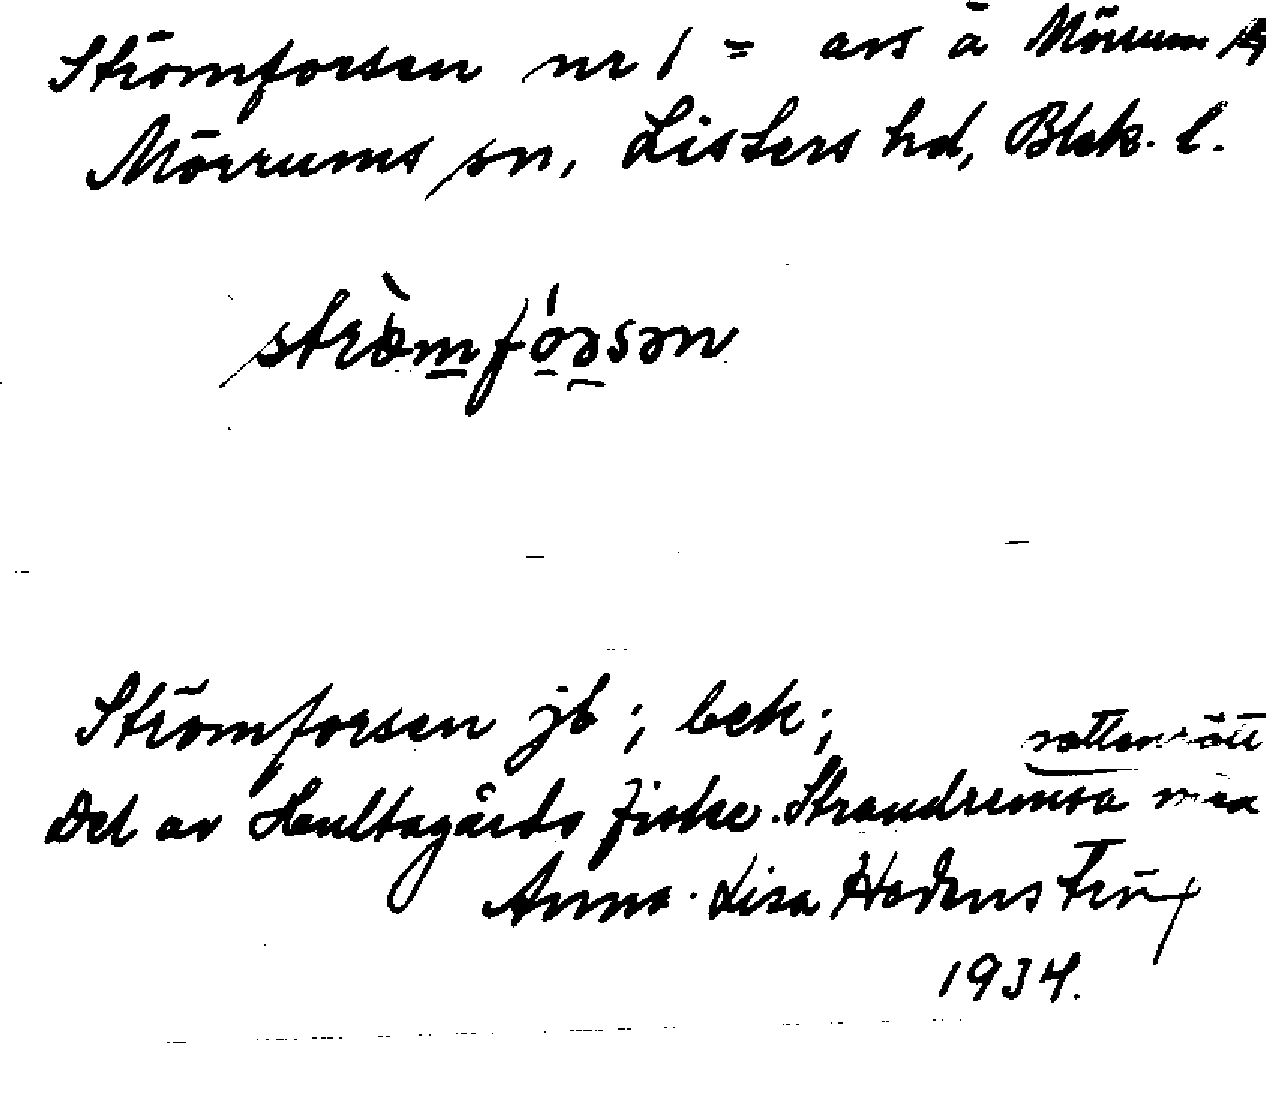 Strömforsen nr 1 = avs å Mörrum
Mörrums sn, Listers hd, Blek. l.
strömfórsən
Strömforsen jb; bek;
vattenrätt
Del av Hultagårds fiske. Strandremsa med
Anna-Lisa
1934.